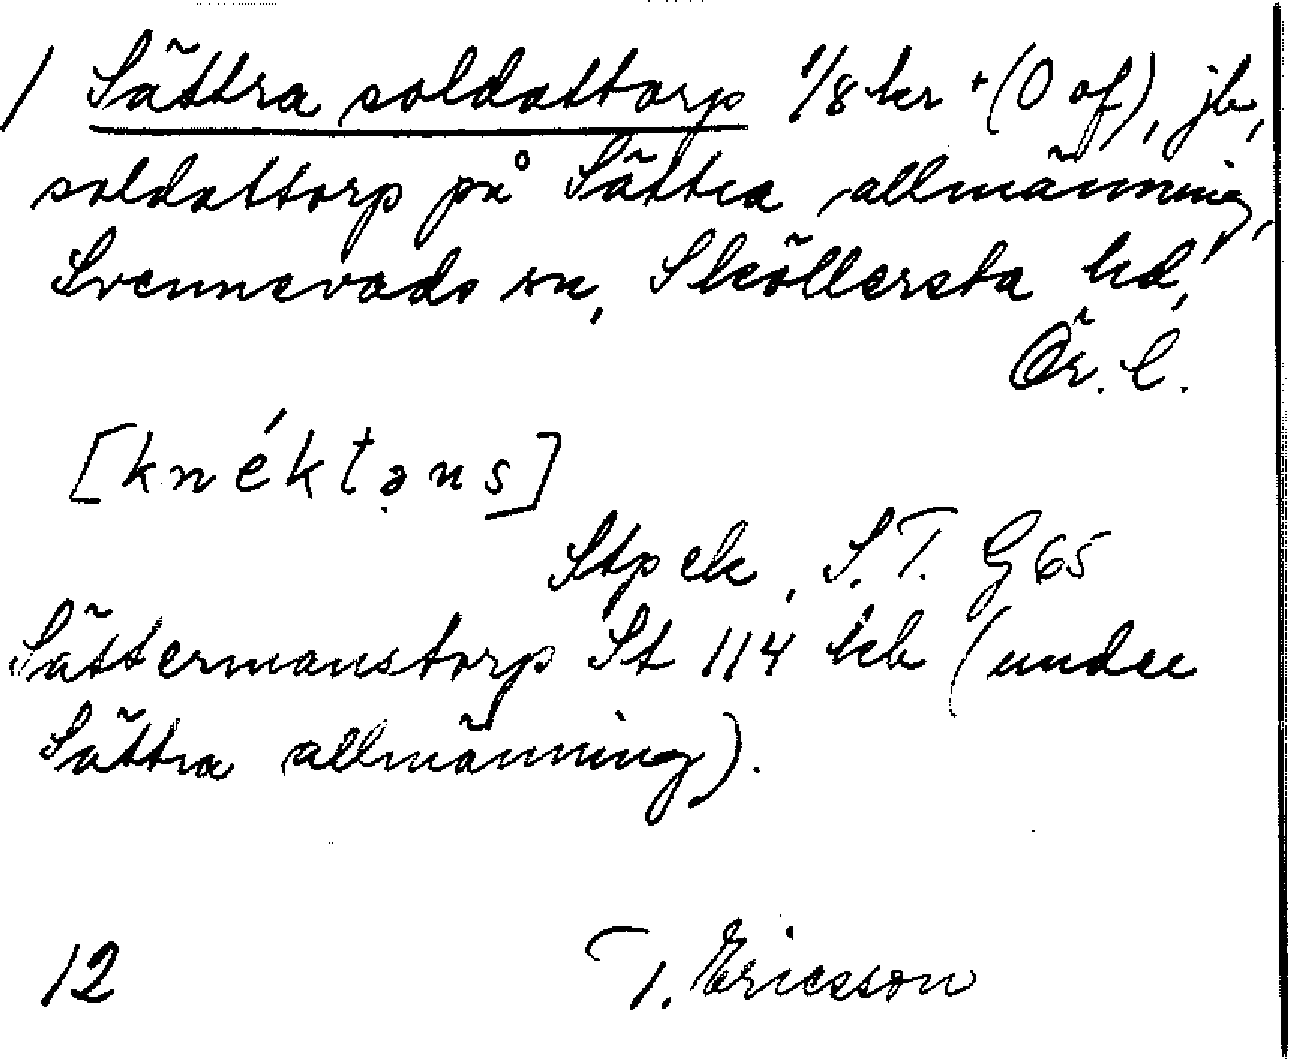 / Sättra soldattorp 1/8 kr + (0 of), jb,
soldattorp på Sättra allmänning,
Svennevads sn, Sköllersta hd,
Ör. l.
[knéktəns]
Stp ek, S.T. G65
Sättermanstorp St 114 kb (under
Sättra allmänning).
12 T. Ericsson